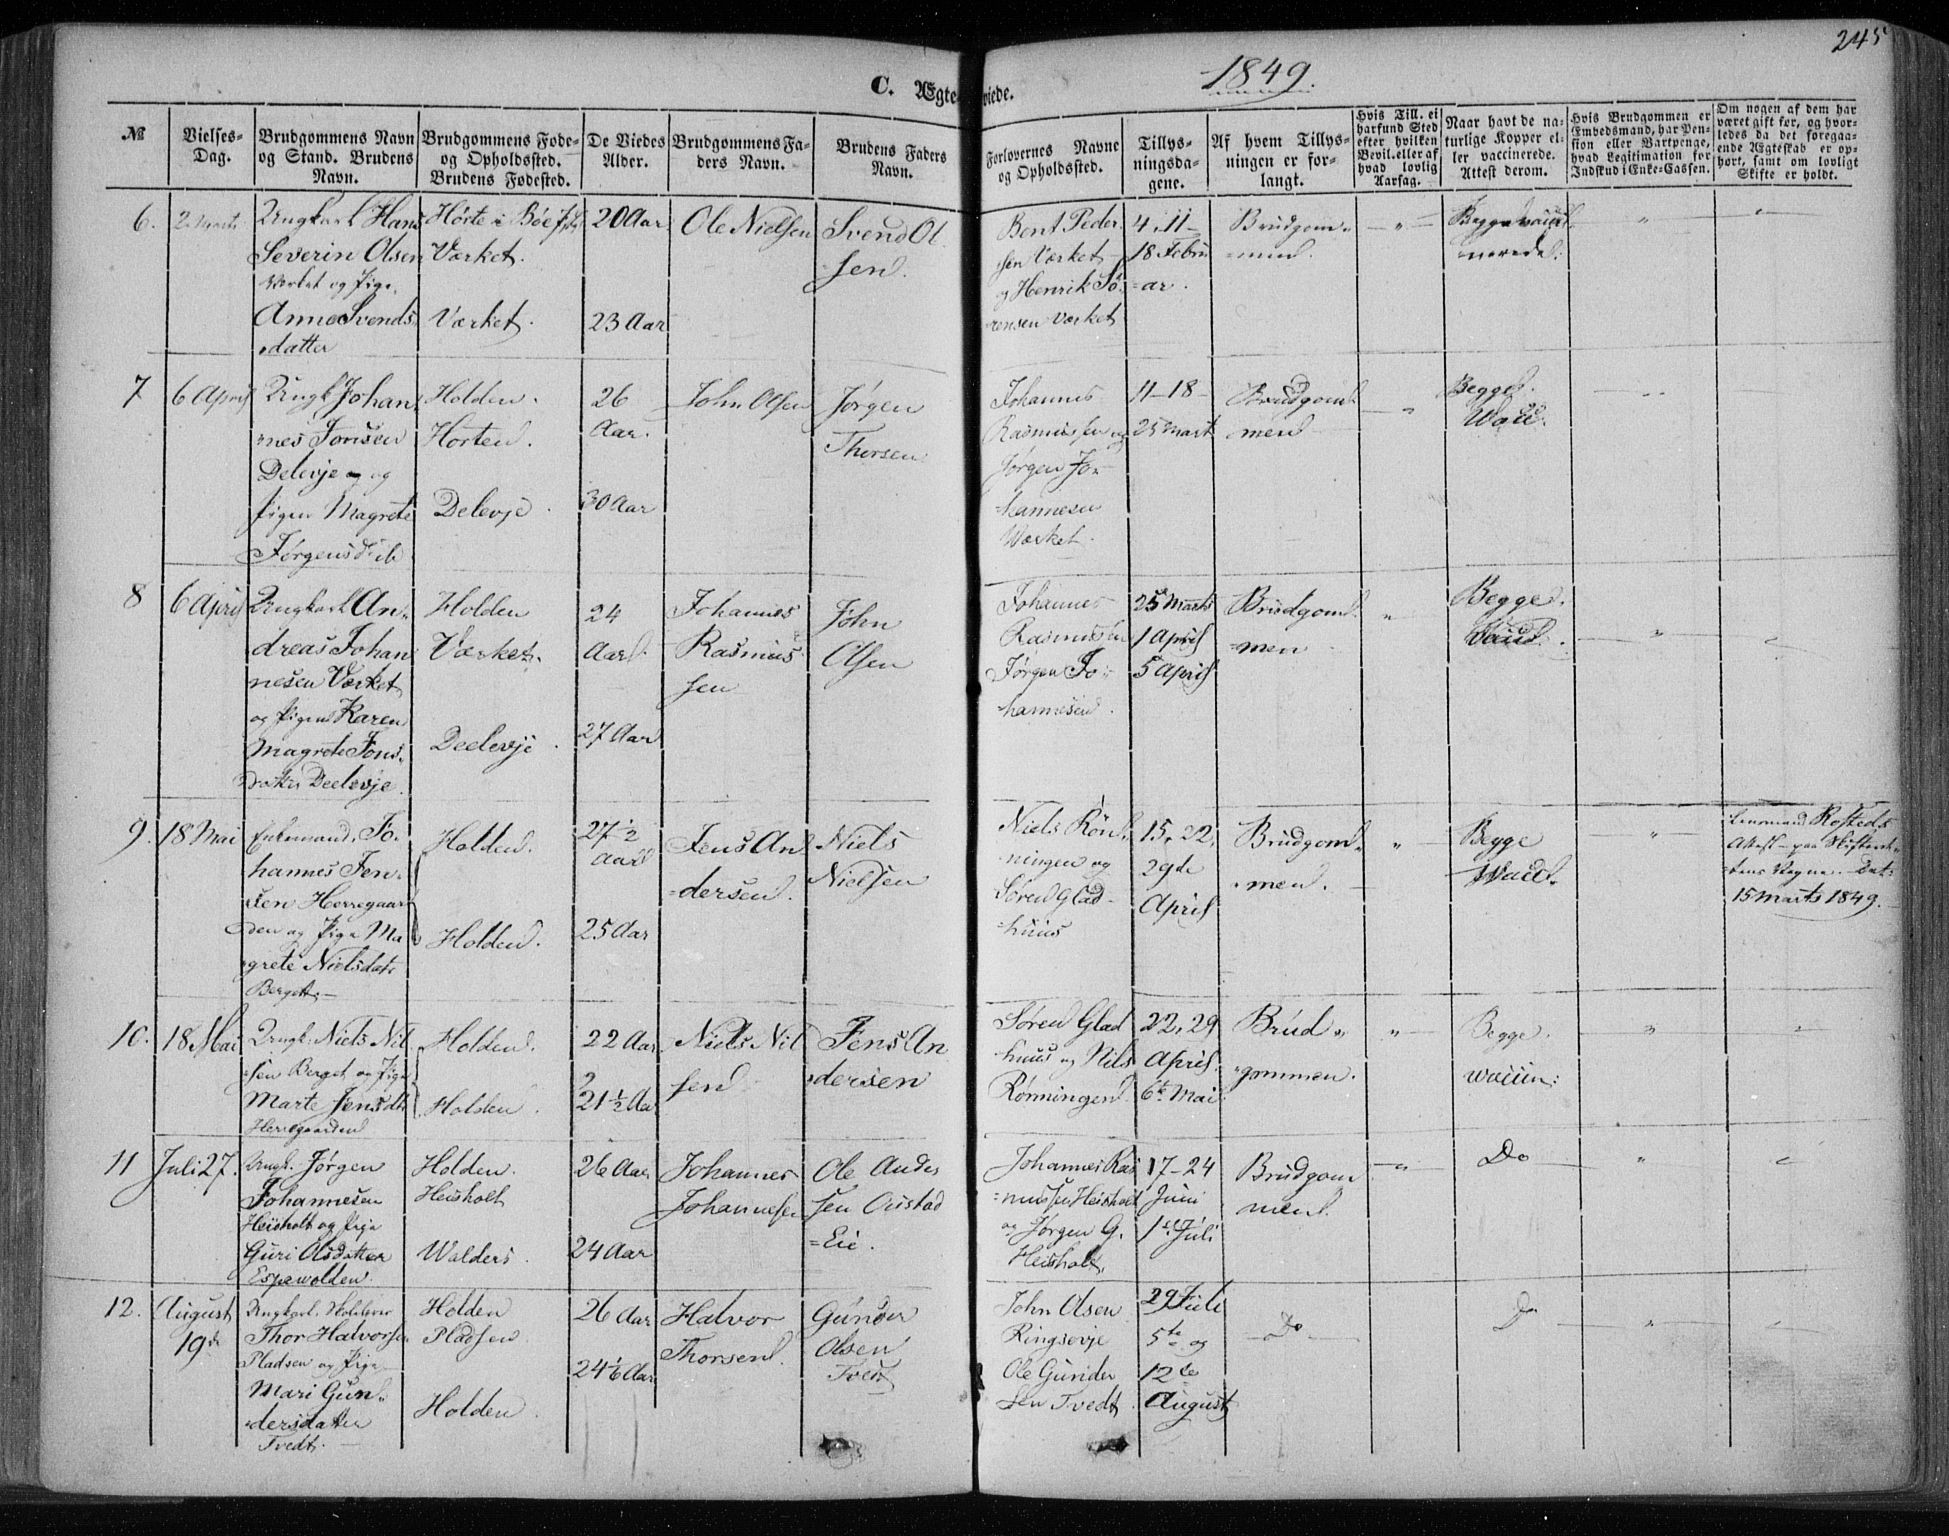 245
1849.
C. Ægteviede.
№
Vielses-
Dag.
Brudgommens Navn
og Stand. Brudens
Navn.
Brudgommens Føde-
og Opholdssted.
Brudens Fødested.
De Viedes
Alder.
Brudgommens Fa-
ders Navn.
Brudens Faders
Navn.
Forlovernes Navne
og Opholdssted.
Tillys-
ningsda-
gene.
Af hvem Tillys-
ningen er for-
langt.
Hvis Till. ei
har fund Sted
efter hvilken
Bevil. eller af
hvad lovlig
Aarsag.
Naar havt de na-
turlige Kopper el-
ler vaccinerede.
Attest derom.
Hvis Brudgommen er
Embedsmand, har Pen-
sion eller Vartpenge,
hvad Legitimation for
Indskud i Enke-Cassen.
Om nogen af dem har
været gift før, og hvor-
ledes da det foregaa-
ende Ægteskab er op-
hørt, samt om lovligt
Skifte er holdt.
6.
2 Marts
Ungkarl Hans
Severin Olsen
Værket og Pige
Anne Svends
datter
Hørte i Bøe
Værket.
Værket.
20 Aar
23 Aar
Ole Nielsen
Svend Ol
sen.
Bent Peder
sen Værket
og Henrik Sø
rensen Værket
4, 11
18 Febru
ar.
Brudgom
men.
Begge vacci
nerede.
7
6 April
Ungk Johan
nes Jonsen
Delevje og
Pigen Magrete
Jørgensd
Holden.
Horten.
Delevje.
26
Aar.
30 Aar
John Olsen
Jørgen
Thorsen
Johannes
Rasmussen og
Jørgen Jo-
hannesen
Værket.
11-18-
25 Mart
Brudgom
men
Begge.
Wacc.
8
6 April
Ungkarl An-
dreas Johan
nesen Værket
og Pigen Karen
Magrete Jons-
datter Deelevje.
Holden
Værket.
Deelevje.
24
Aar.
27 Aar
Johannes
Rasmus
sen
John
Olsen
Johannes
Rasmussen
Jørgen Jo-
hannesen.
25 Marts
1 April
5 April
Brudgom
men
Begge.
Vacc.
9.
18 Mai
Enkemand Jo-
hannes Jen-
sen Herregaar
den og Pige Ma
grete Nielsdat
Berget.
Holden.
Holden.
27½
Aar
25 Aar
Jens An
dersen.
Niels
Nielsen
Niels Røn-
ningen og
Søren Glad-
huus
15, 22,
29de
April
Brudgom
men.
Begge
Wacc.
Lensmand Rosteds
Attest paa Skifteret
tens Vegne. Dat:
15 Marts 1849.
10.
18 Mai
Ungk. Niels Nil
sen Berget og Pige
Marte Jensdt
Herregaarden
Holden.
Holden.
22 Aar
21½ Aar
Niels Nil
sen
Jens An
dersen
Søren Glad
huus og Nils
Rønningen.
22, 29
April
6te Mai
Brud
gommen.
Begge.
waccin:
11
Juli 27.
Ungk. Jørgen
Johannesen
Heisholt og Pige
Guri Olsdatter
Espevolden
Holden.
Heisholt
Walders.
26 Aar
24 Aar
Johannes
Johannesen
Ole Ander
sen
Eie.
Johannes Ras
mussen Heisholt
og Jørgen G.
Heisholt,
17-24
Juni
1ste Juli
Brudgom
men.
Do
12.
August
19de
Ungkarl.
Thor Halvorsen
Pladsen og Pige
Mari Gun-
dersdatter
Tvedt.
Holden
Pladsen.
Holden
26 Aar
24 Aar
Halvor
Thorsen
Gunder
Olsen
Tvedt
John Olsen
Ringsevje
Ole Gunder
sen Tvedt
29 Juli
5te og
12te
August
Do
Do